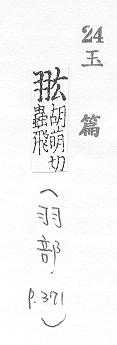 24 玉篇
胡萌切
蟲飛
(羽部, p.371)